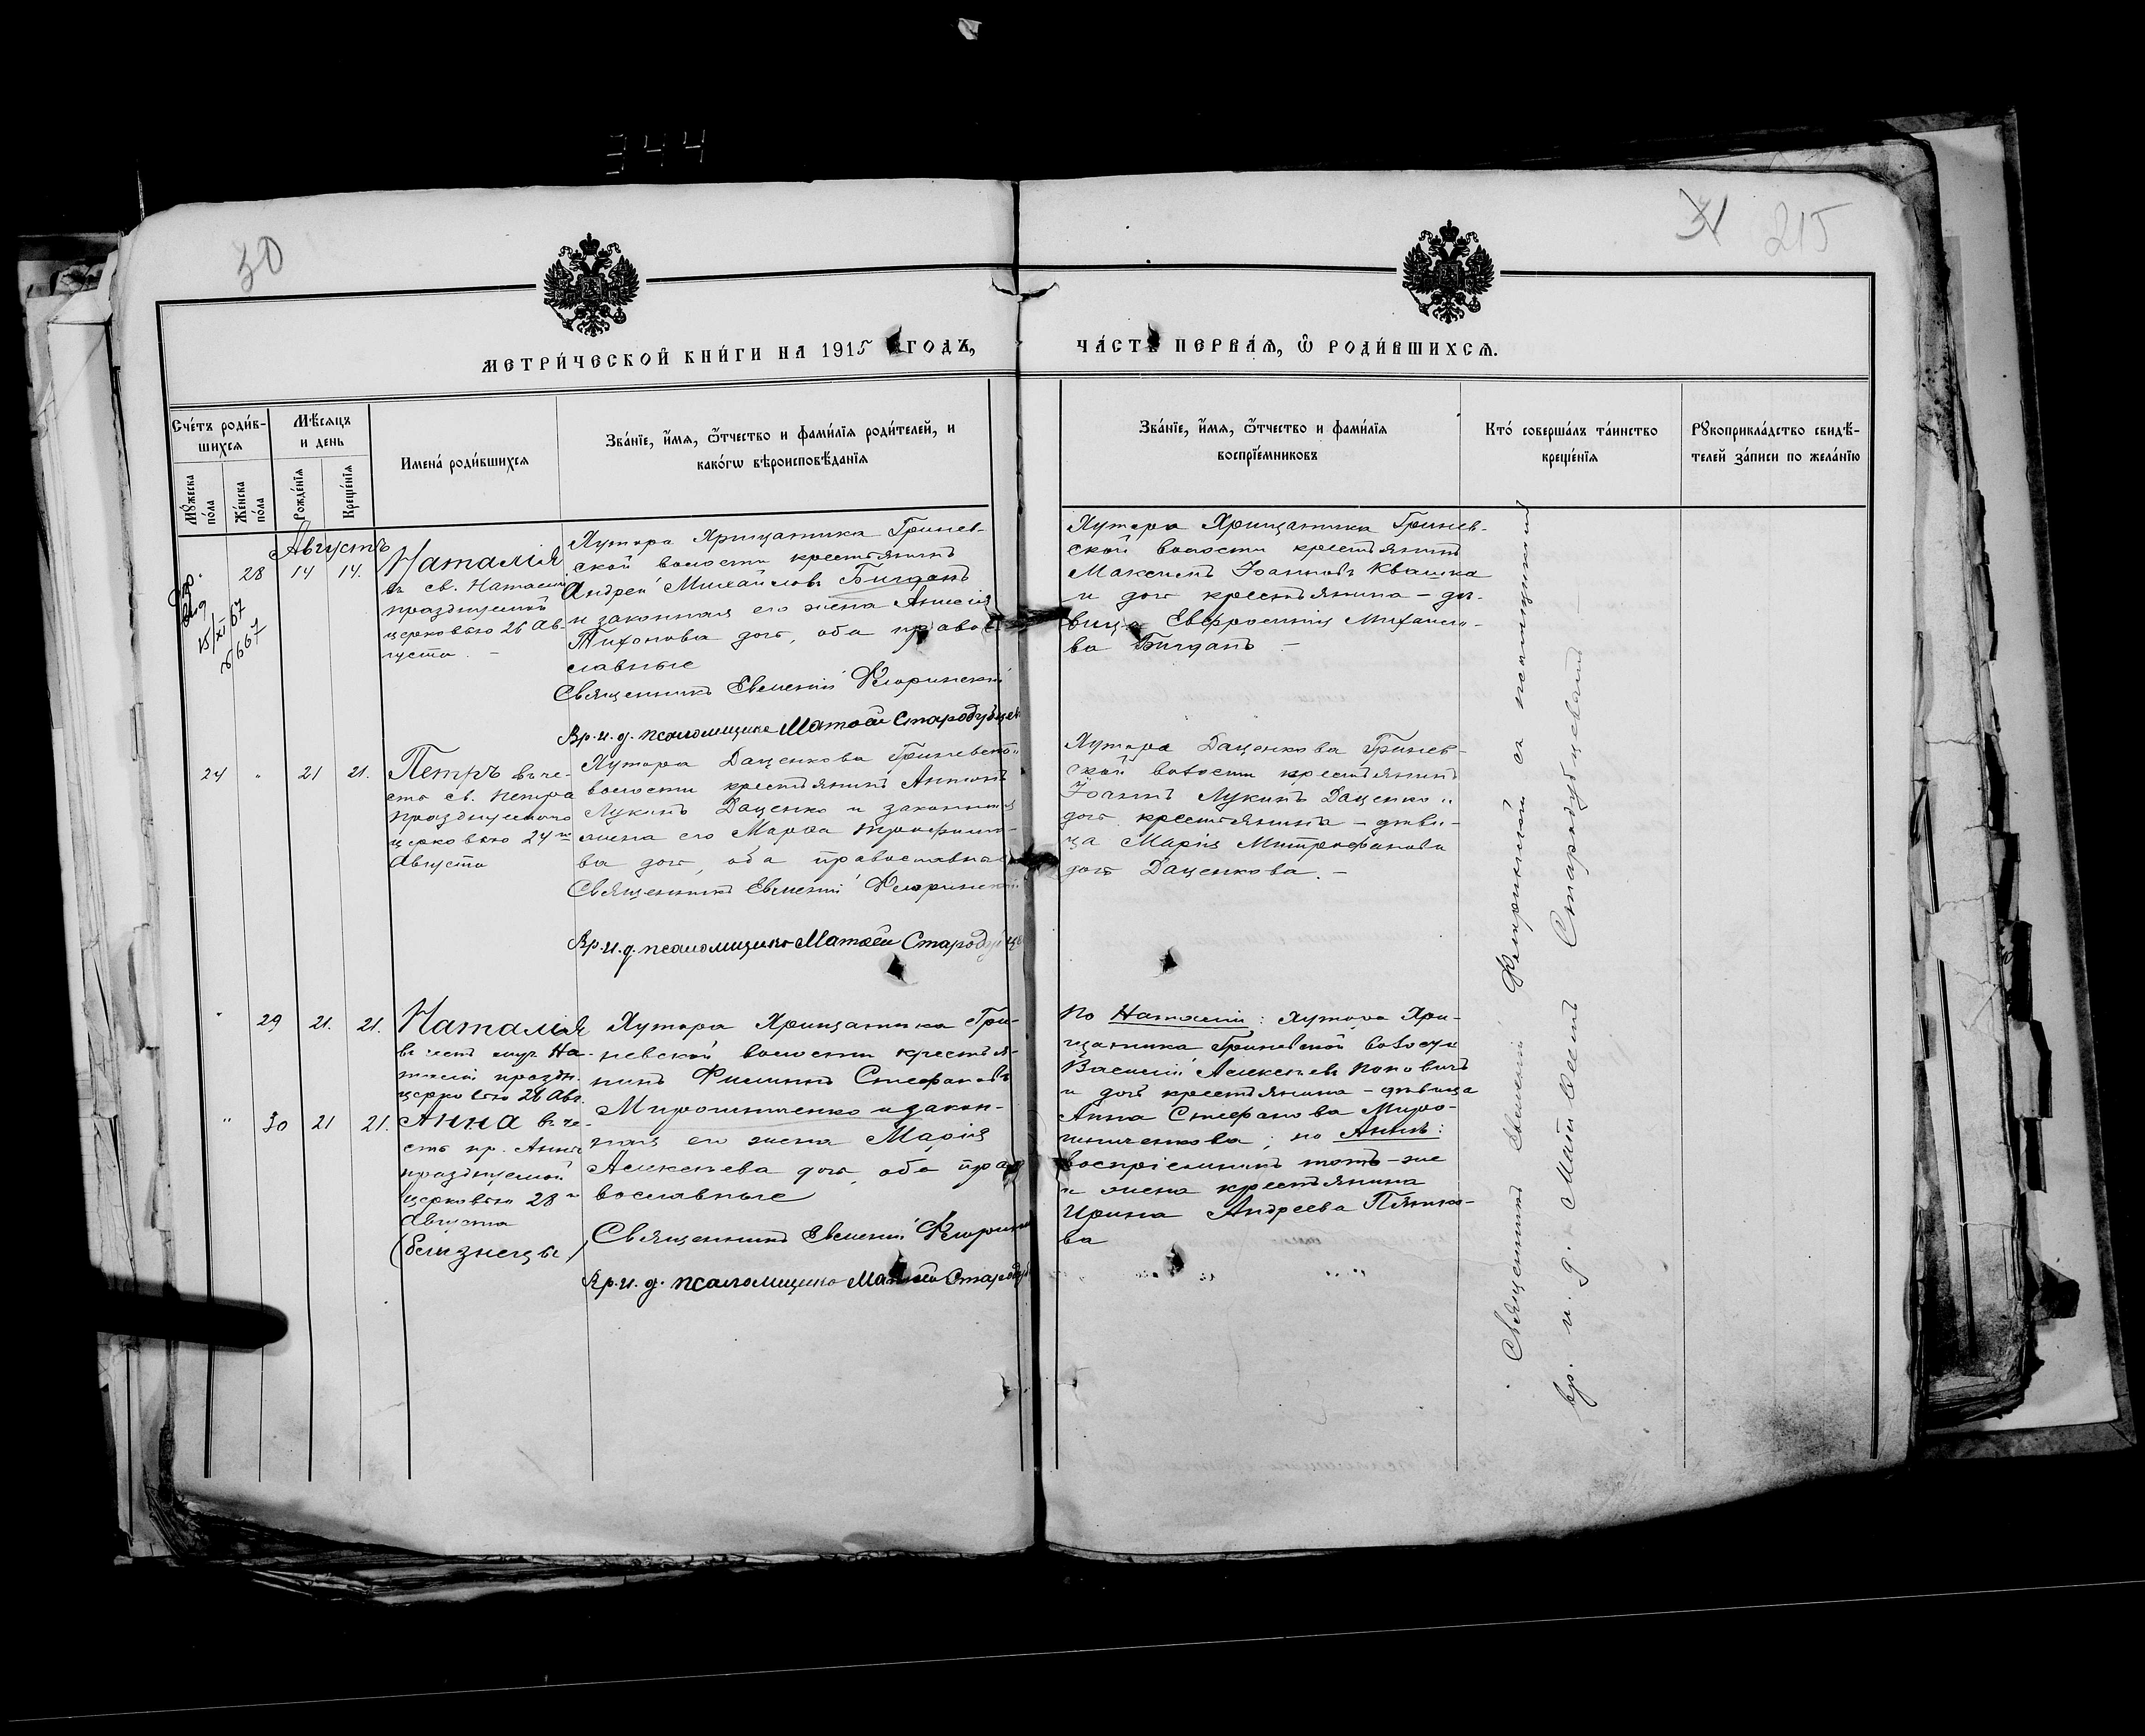 344
30
31 215
МЕТРИ́ЧЕСКОЙ КНИ́ГИ НА 1915 ГОДЪ,
ЧА́СТЬ ПЕРВАѦ, Ѡ РОДИ́ВШИХСѦ.
Сче́тъ роди́в-
шихсѧ
Мꙋ́жеска
по́ла
Же́нска
по́ла
Мѣ́сѧцъ
и день
Рожде́нїѧ
Креще́нїѧ
Имена̀ роди́вшихсѧ
Зва́нїе, и́мѧ, ѻ҆́тчество и фами́лїѧ роди́телей, и
како́гѡ вѣроисповѣ́данїѧ
Зва́нїе, и́мѧ, ѻ҆́тчество и фами́лїѧ
воспрїе́мниковъ
Кто̀ соверша́лъ та́инство
креще́нїѧ
Рꙋкоприкла́дство свидѣ́-
телей за́писи по жела́нїю
Августъ
28 14 14.
15/XI 67
Наталія
въ св. Наталіи
празднуемой
церковью 26 Ав-
густа. –
Хутора Хрищатика Гринев-
ской волости крестьянинъ
Андрей Михайловъ Бигданъ
и законная его жена Анисія
Тихонова дочь, оба право-
славные
Священникъ Евменій Флоринскій
Вр. и. д. псаломщика Матѳей Стародубцев
Хутора Хрищатика Гринев-
ской волости крестьянинъ
Максимъ Іоанновъ Квашка
и дочь крестьянина – дѣ-
вица Евфросинія Михайло-
ва Бигданъ –
24 " 21 21.
Петръ въ че-
сть св. Петра
празднуемаго
церковью 24го
Августа
Хутора Даценкова Гриневской
волости крестьянинъ Антонъ
Лукинъ Даценко и законная
жена его Марѳа Трофимо-
ва дочь, оба православные
Священникъ Евменій Флоринскій
Вр. и. д. псаломщика Матѳей Стародубцев
Хутора Даценкова Гринев-
ской волости крестьянинъ
Іоаннъ Лукинъ Даценко и
дочь крестьянина – дѣви-
ца Марія Митрофанова
дочь Даценкова. –
" 29 21. 21.
Наталія
въ честь муч. На-
таліи праздн.
церковью 26 Авг.
Хутора Хрищатика Гри-
невской волости крестья-
нинъ Филиппъ Стефановъ
Мирошниченко и закон-
ная его жена Марія
Алексѣева дочь, оба пра-
вославные
Священникъ Евменій Флорин
Вр. и. д. псаломщика Матѳей Стародуб
" 30 21 21.
Анна въ че-
сть пр. Анны
празднуемой
церковью 28го
Августа
(близнецы)
По Наталіи: хутора Хри-
щатика Гриневской волости
Василій Алексѣевъ Поповичъ
и дочь крестьянина – дѣвица
Анна Стефанова Миро-
шниченкова; по Аннѣ:
воспріемникъ тотъ-же
и жена крестьянина
Ирина Андреева Пятко-
ва
Священникъ Евменій Флоринскій съ псаломщикомъ
вр. и. д. Матѳеемъ Стародубцевымъ –